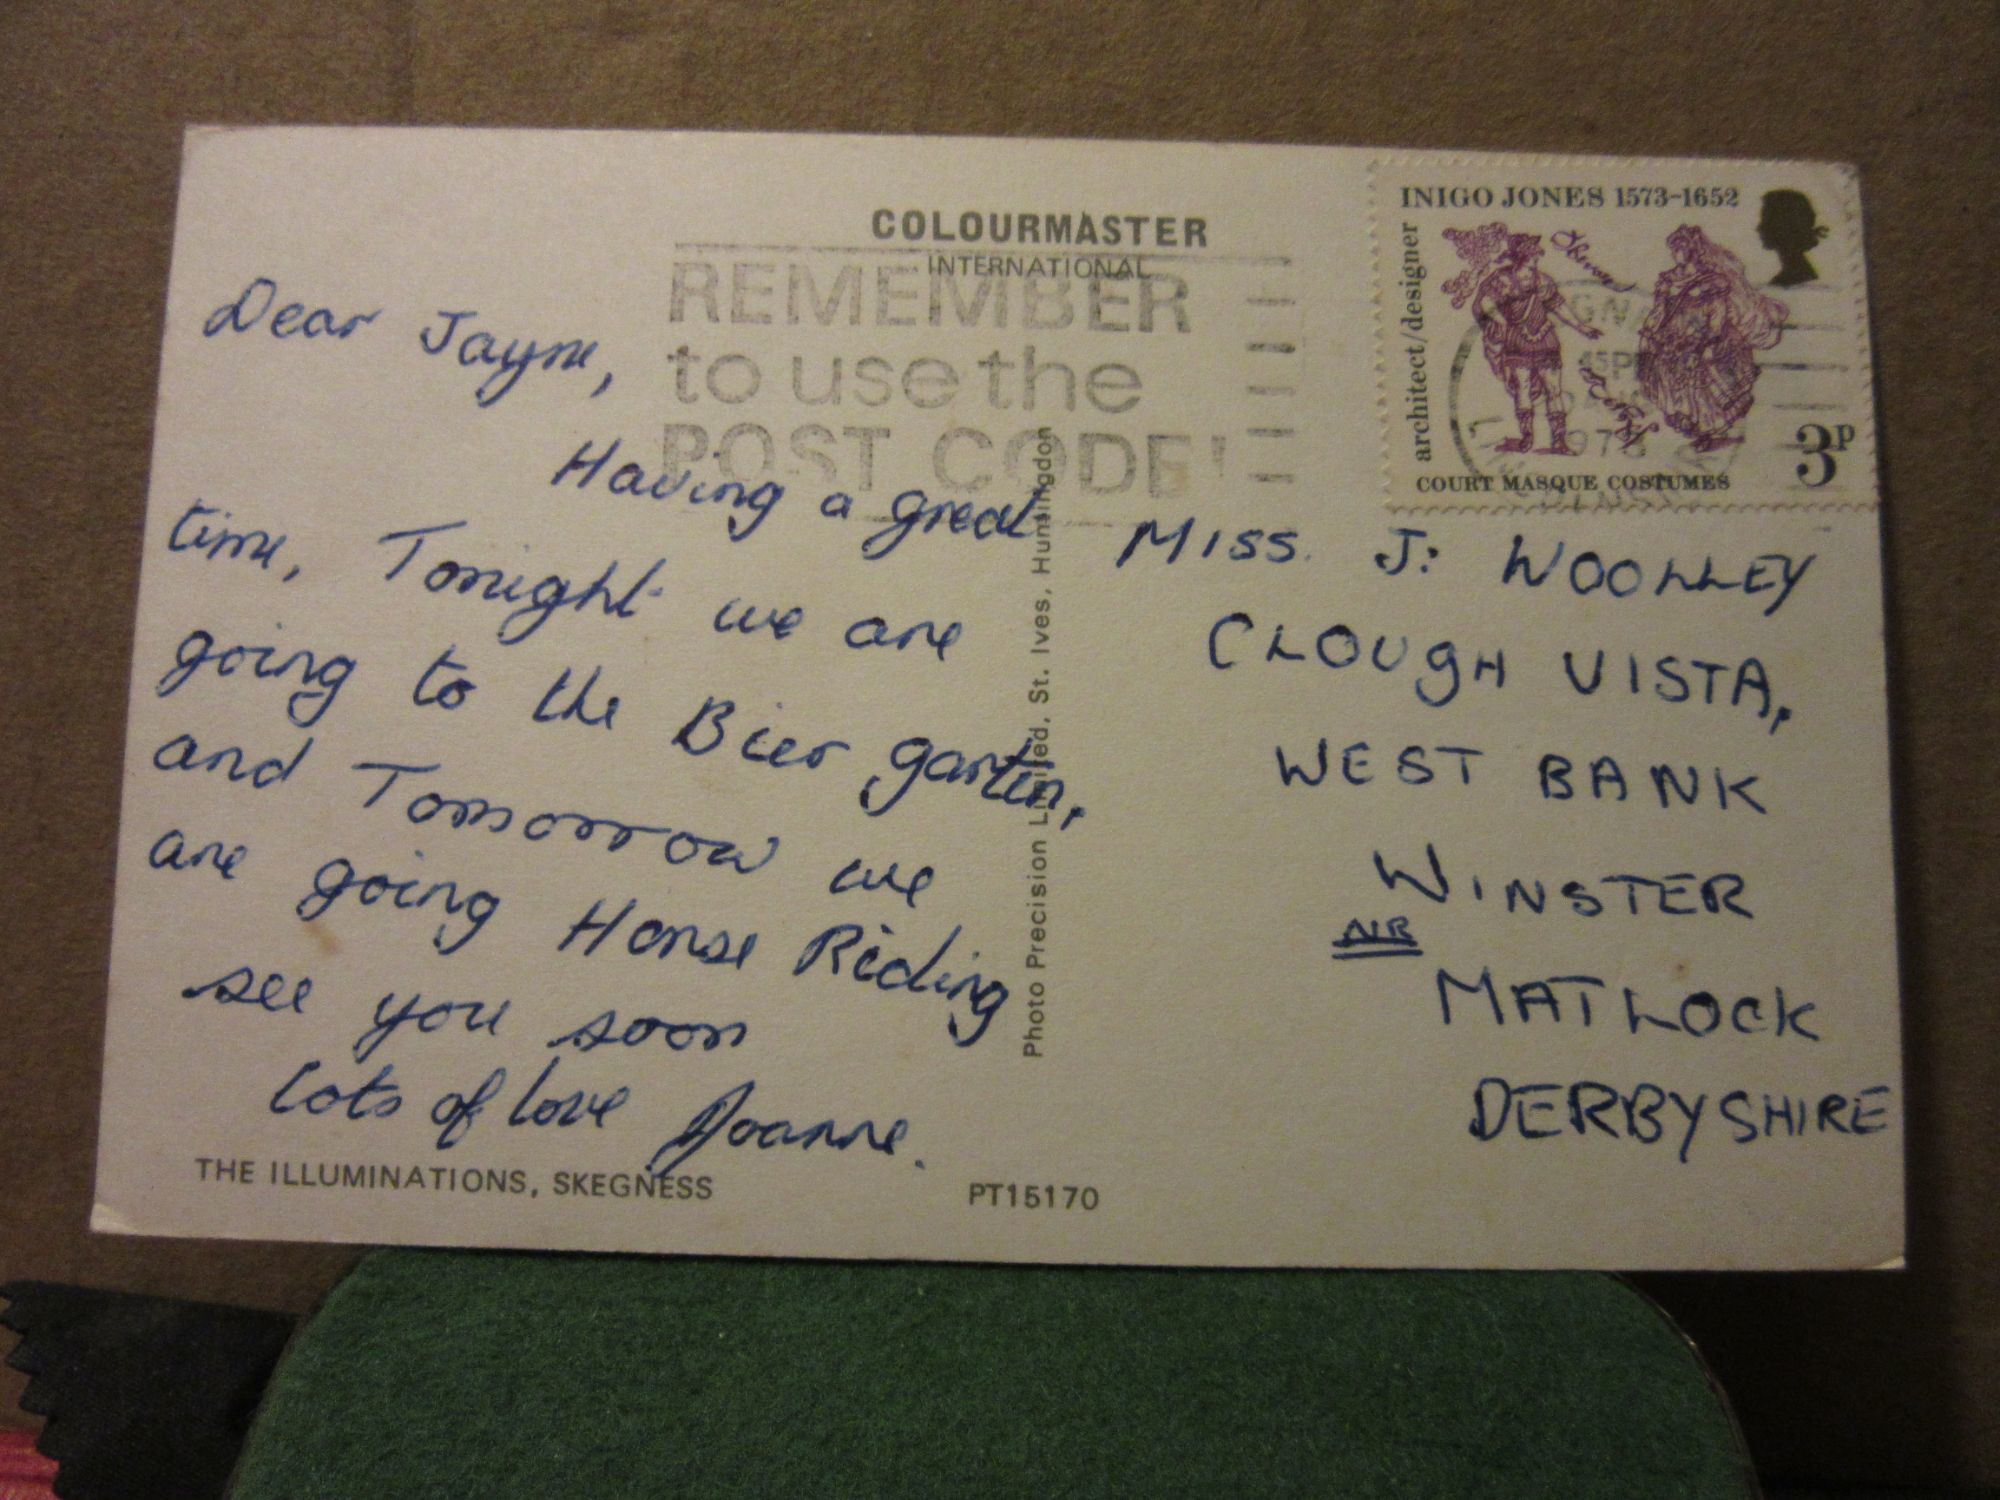 COLOURMASTER
INTERNATIONAL
REMEMBER
to use the
POST CODE!
INIGO JONES 1573-1652
architect/designer
COURT MASQUE COSTUMES
3P
Dear Jayne,
Having a great
time, Tonight we are
going to the Bier garten,
and Tomorrow we
are going Horse Riding
see you soon
lots of love Joanne.
THE ILLUMINATIONS, SKEGNESS
PT15170
Photo Precision Limited, St. Ives, Huntingdon
MISS. J: WOOLLEY
CLOUGH VISTA,
WEST BANK
WINSTER
NR
MATLOCK
DERBYSHIRE